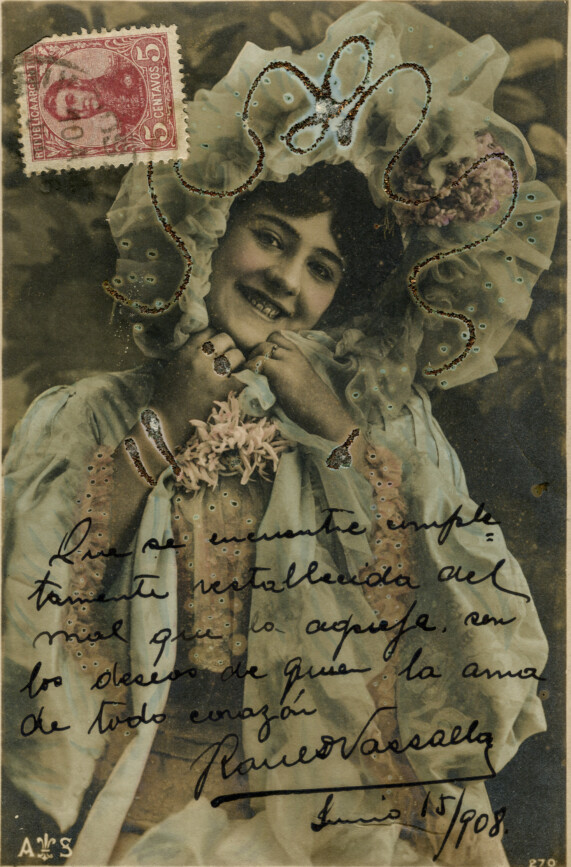 REPUBLICA ARGENTINA
5 CENTAVOS 5
Que se encuentre comple=
tamente restallecida del
mal que la aqueja, son
los deseos de quien la ama
de todo corazón
Vassallo
Junio 15/908.
A S
270